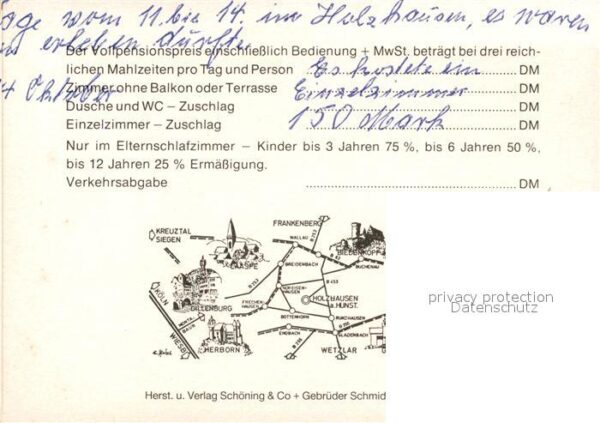 vom 11. bis 14. in Holzhausen, es waren
erleben durfte.
Der Vollpensionspreis einschließlich Bedienung + MwSt. beträgt bei drei reich-
lichen Mahlzeiten pro Tag und Person Es kostete ein DM
Oktober
Zimmer ohne Balkon oder Terrasse Einzelzimmer DM
Dusche und WC – Zuschlag 150 Mark DM
Einzelzimmer – Zuschlag DM
Nur im Elternschlafzimmer – Kinder bis 3 Jahren 75 %, bis 6 Jahren 50 %,
bis 12 Jahren 25 % Ermäßigung.
Verkehrsabgabe DM
FRANKENBERG
KREUZTAL
SIEGEN
WALLAU
B 253
BIEDENKOPF
LAASPE
BREIDENBACH
B 62
BUCHENAU
B 253
B 453
KÖLN
DILLENBURG
FRECHEN-
HAUSEN
HOLZHAUSEN
a. HÜNST.
BOTTENHORN
RUNZHAUSEN
WIESB
HERBORN
ENDBACH
B 255
GLADENBACH
WETZLAR
privacy protection
Datenschutz
Herst. u. Verlag Schöning & Co + Gebrüder Schmid